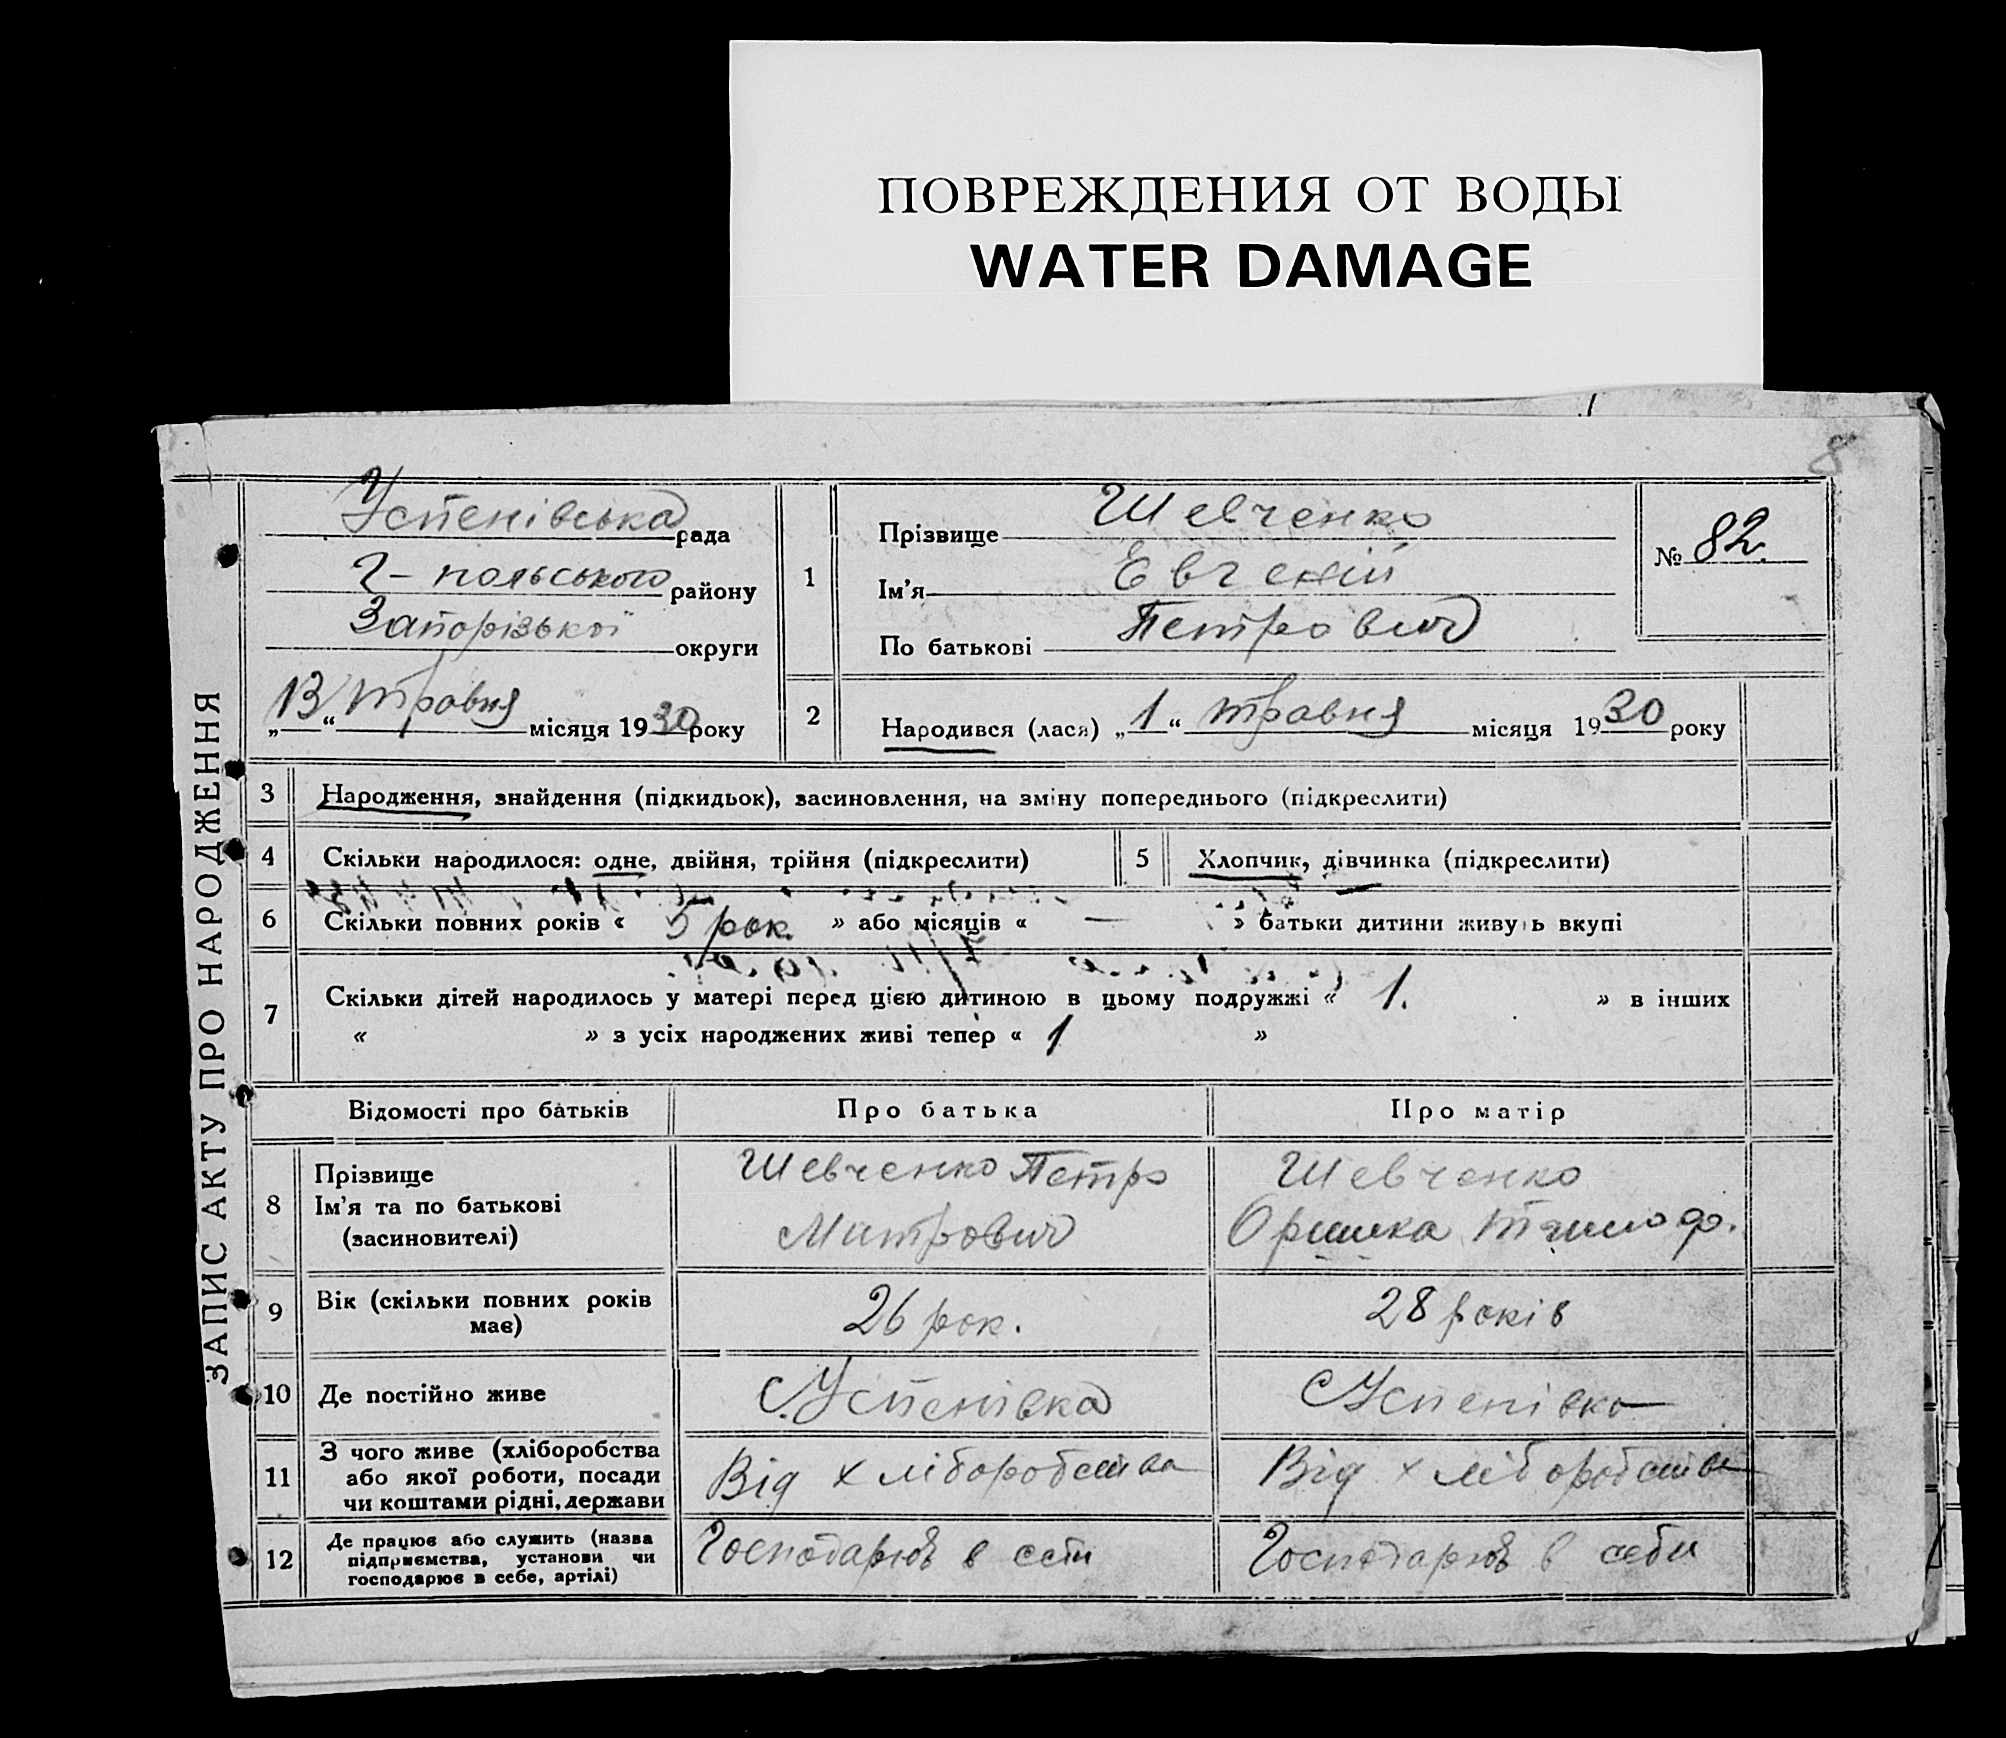 ПОВРЕЖДЕНИЯ ОТ ВОДЫ
WATER DAMAGE
8
ЗАПИС АКТУ ПРО НАРОДЖЕННЯ
Успенівська рада
Г-польського району
Запорізької округи
„13“ травня місяця 1930 року
1
Прізвище Шевченко
Ім'я Евгеній
По батькові Петрович
№ 82.
2 Народився (лася) „1“ травня місяця 1930 року
3 Народження, знайдення (підкидьок), засиновлення, на зміну попереднього (підкреслити)
4 Скільки народилося: одне, двійня, трійня (підкреслити) 5 Хлопчик, дівчинка (підкреслити)
6 Скільки повних років « 5 рок. » або місяців « — » батьки дитини живуть вкупі
7 Скільки дітей народилось у матері перед цією дитиною в цьому подружжі « 1. » в інших
« » з усіх народжених живі тепер « 1 »
Відомості про батьків Про батька Про матір
8 Прізвище
Ім'я та по батькові
(засиновителі)
Шевченко Петро
Митрович
Шевченко
Оришка Тимоф.
9 Вік (скільки повних років
має)
26 рок. 28 років
10 Де постійно живе С. Успенівка С Успенівка
11 З чого живе (хліборобства
або якої роботи, посади
чи коштами рідні, держави
Від хліборобства Від хліборобства
12 Де працює або служить (назва
підприємства, установи чи
господарює в себе, артілі)
Господарює в себи Господарює в себи